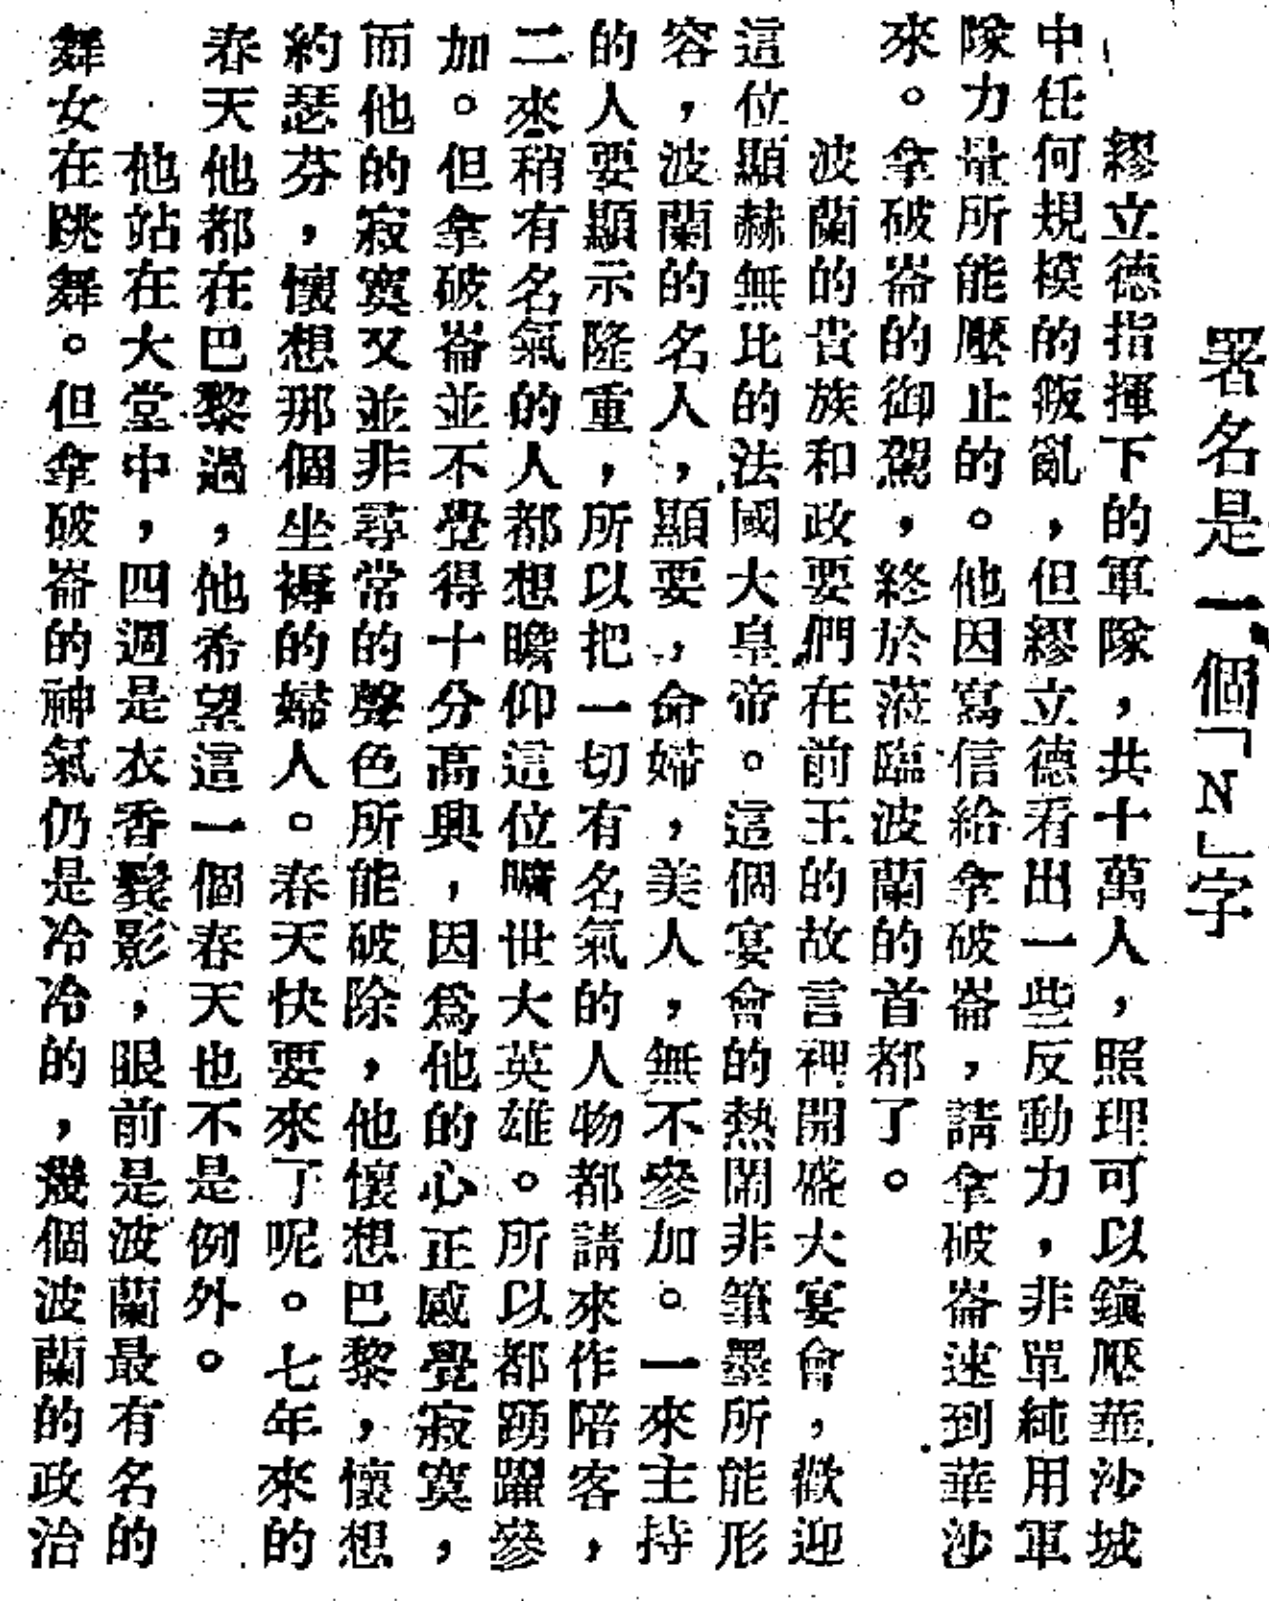 署名是一個「N」字
繆立德指揮下的軍隊，共十萬人，照理可以鎮壓華沙城
中任何規模的叛亂，但繆立德看出一些反動力，非單純用軍
隊力量所能壓止的。他因寫信給拿破崙，請拿破崙速到華沙
來。拿破崙的御駕，終於蒞臨波蘭的首都了。
波蘭的貴族和政要們在前王的故宮裡開盛大宴會，歡迎
這位顯赫無比的法國大皇帝。這個宴會的熱鬧非筆墨所能形
容，波蘭的名人，顯要，命婦，美人，無不參加。一來主持
的人要顯示隆重，所以把一切有名氣的人物都請來作陪客，
二來稍有名氣的人都想瞻仰這位曠世大英雄。所以都踴躍參
加。但拿破崙並不覺得十分高興，因爲他的心正感覺寂寞，
而他的寂寞又並非尋常的聲色所能破除，他懷想巴黎，懷想
約瑟芬，懷想那個坐褥的婦人。春天快要來了呢。七年來的
春天他都在巴黎過，他希望這一個春天也不是例外。
他站在大堂中，四週是衣香鬢影，眼前是波蘭最有名的
舞女在跳舞。但拿破崙的神氣仍是冷冷的，幾個波蘭的政治